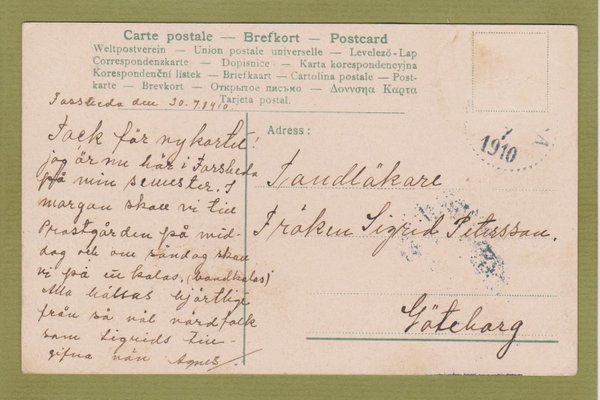 Carte postale — Brefkort — Postcard
Weltpostverein — Union postale universelle — Levelező-Lap
Correspondenzkarte — Dopisnice — Karta korespondencyjna
Korespondenční lístek — Briefkaart — Cartolina postale — Post-
karte — Brevkort — Открытое письмо — Δοννσηα Καρτα
Tarjeta postal.
Forsheda den 30.7.1910.
Tack för nykortet!
jag är nu här i Forsheda
på min semester. I
morgon skall vi till
Prostgården på mid-
dag och om söndag skall
vi på ett kalas. (bandkalas)
Alla hälsas hjärtligt
från så väl värdfolk
som Sigrids till-
gifna vän Agnes
Adress:
Tandläkare
Fröken Sigrid Petersson.
Göteborg
7
1910